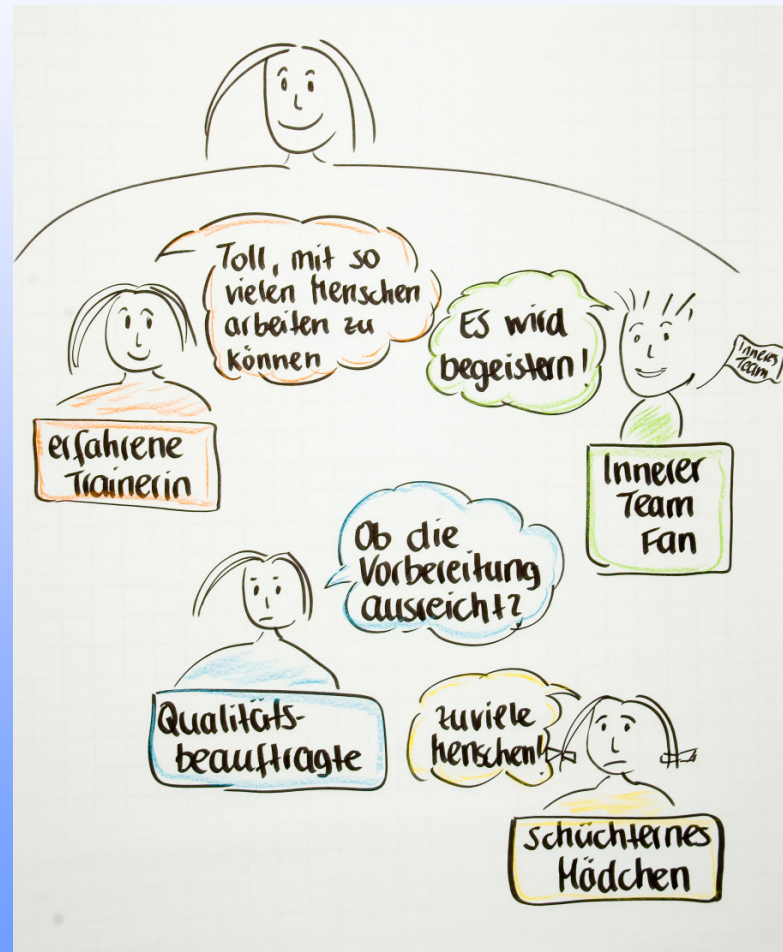 Toll, mit so
vielen Menschen
arbeiten zu
können
Es wird
begeistern!
Inneres
Team
erfahrene
Trainerin
Innerer
Team
Fan
Ob die
Vorbereitung
ausreicht?
Qualitäts-
beauftragte
zuviele
Menschen!
schüchternes
Mädchen